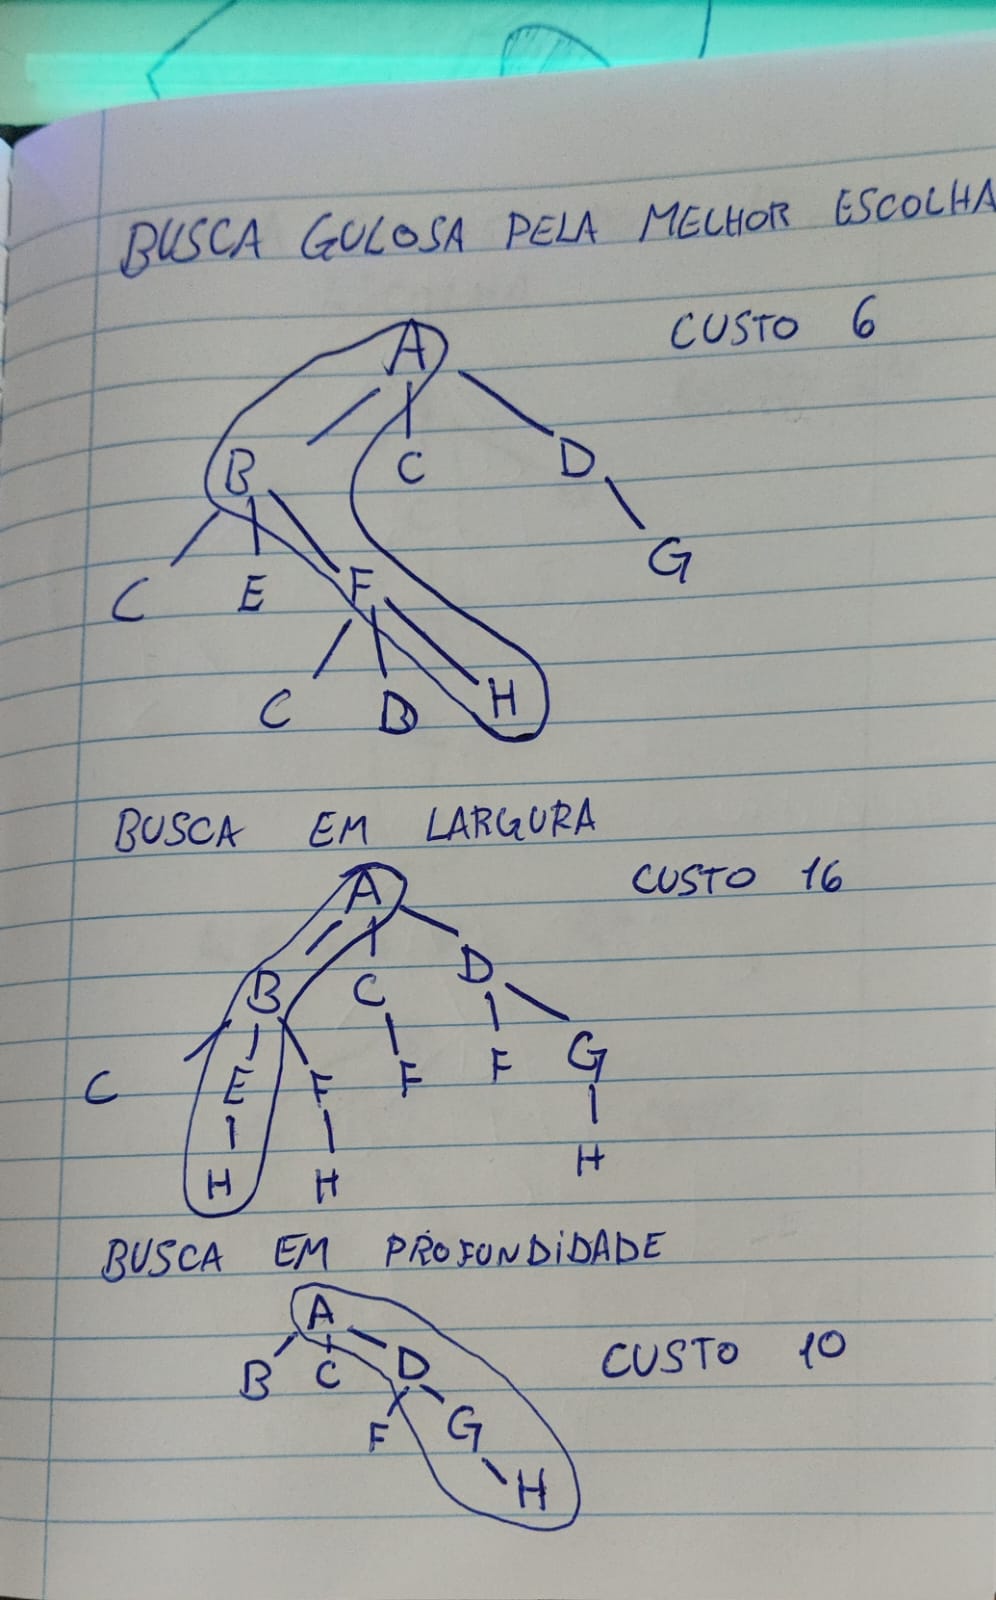 BUSCA GULOSA PELA MELHOR ESCOLHA
CUSTO 6
A
B C D
G
C E F
C D H
BUSCA EM LARGURA
CUSTO 16
A
B C D
C E F F F G
H H H
BUSCA EM PROFUNDIDADE
A
CUSTO 10
B C D
F G
H